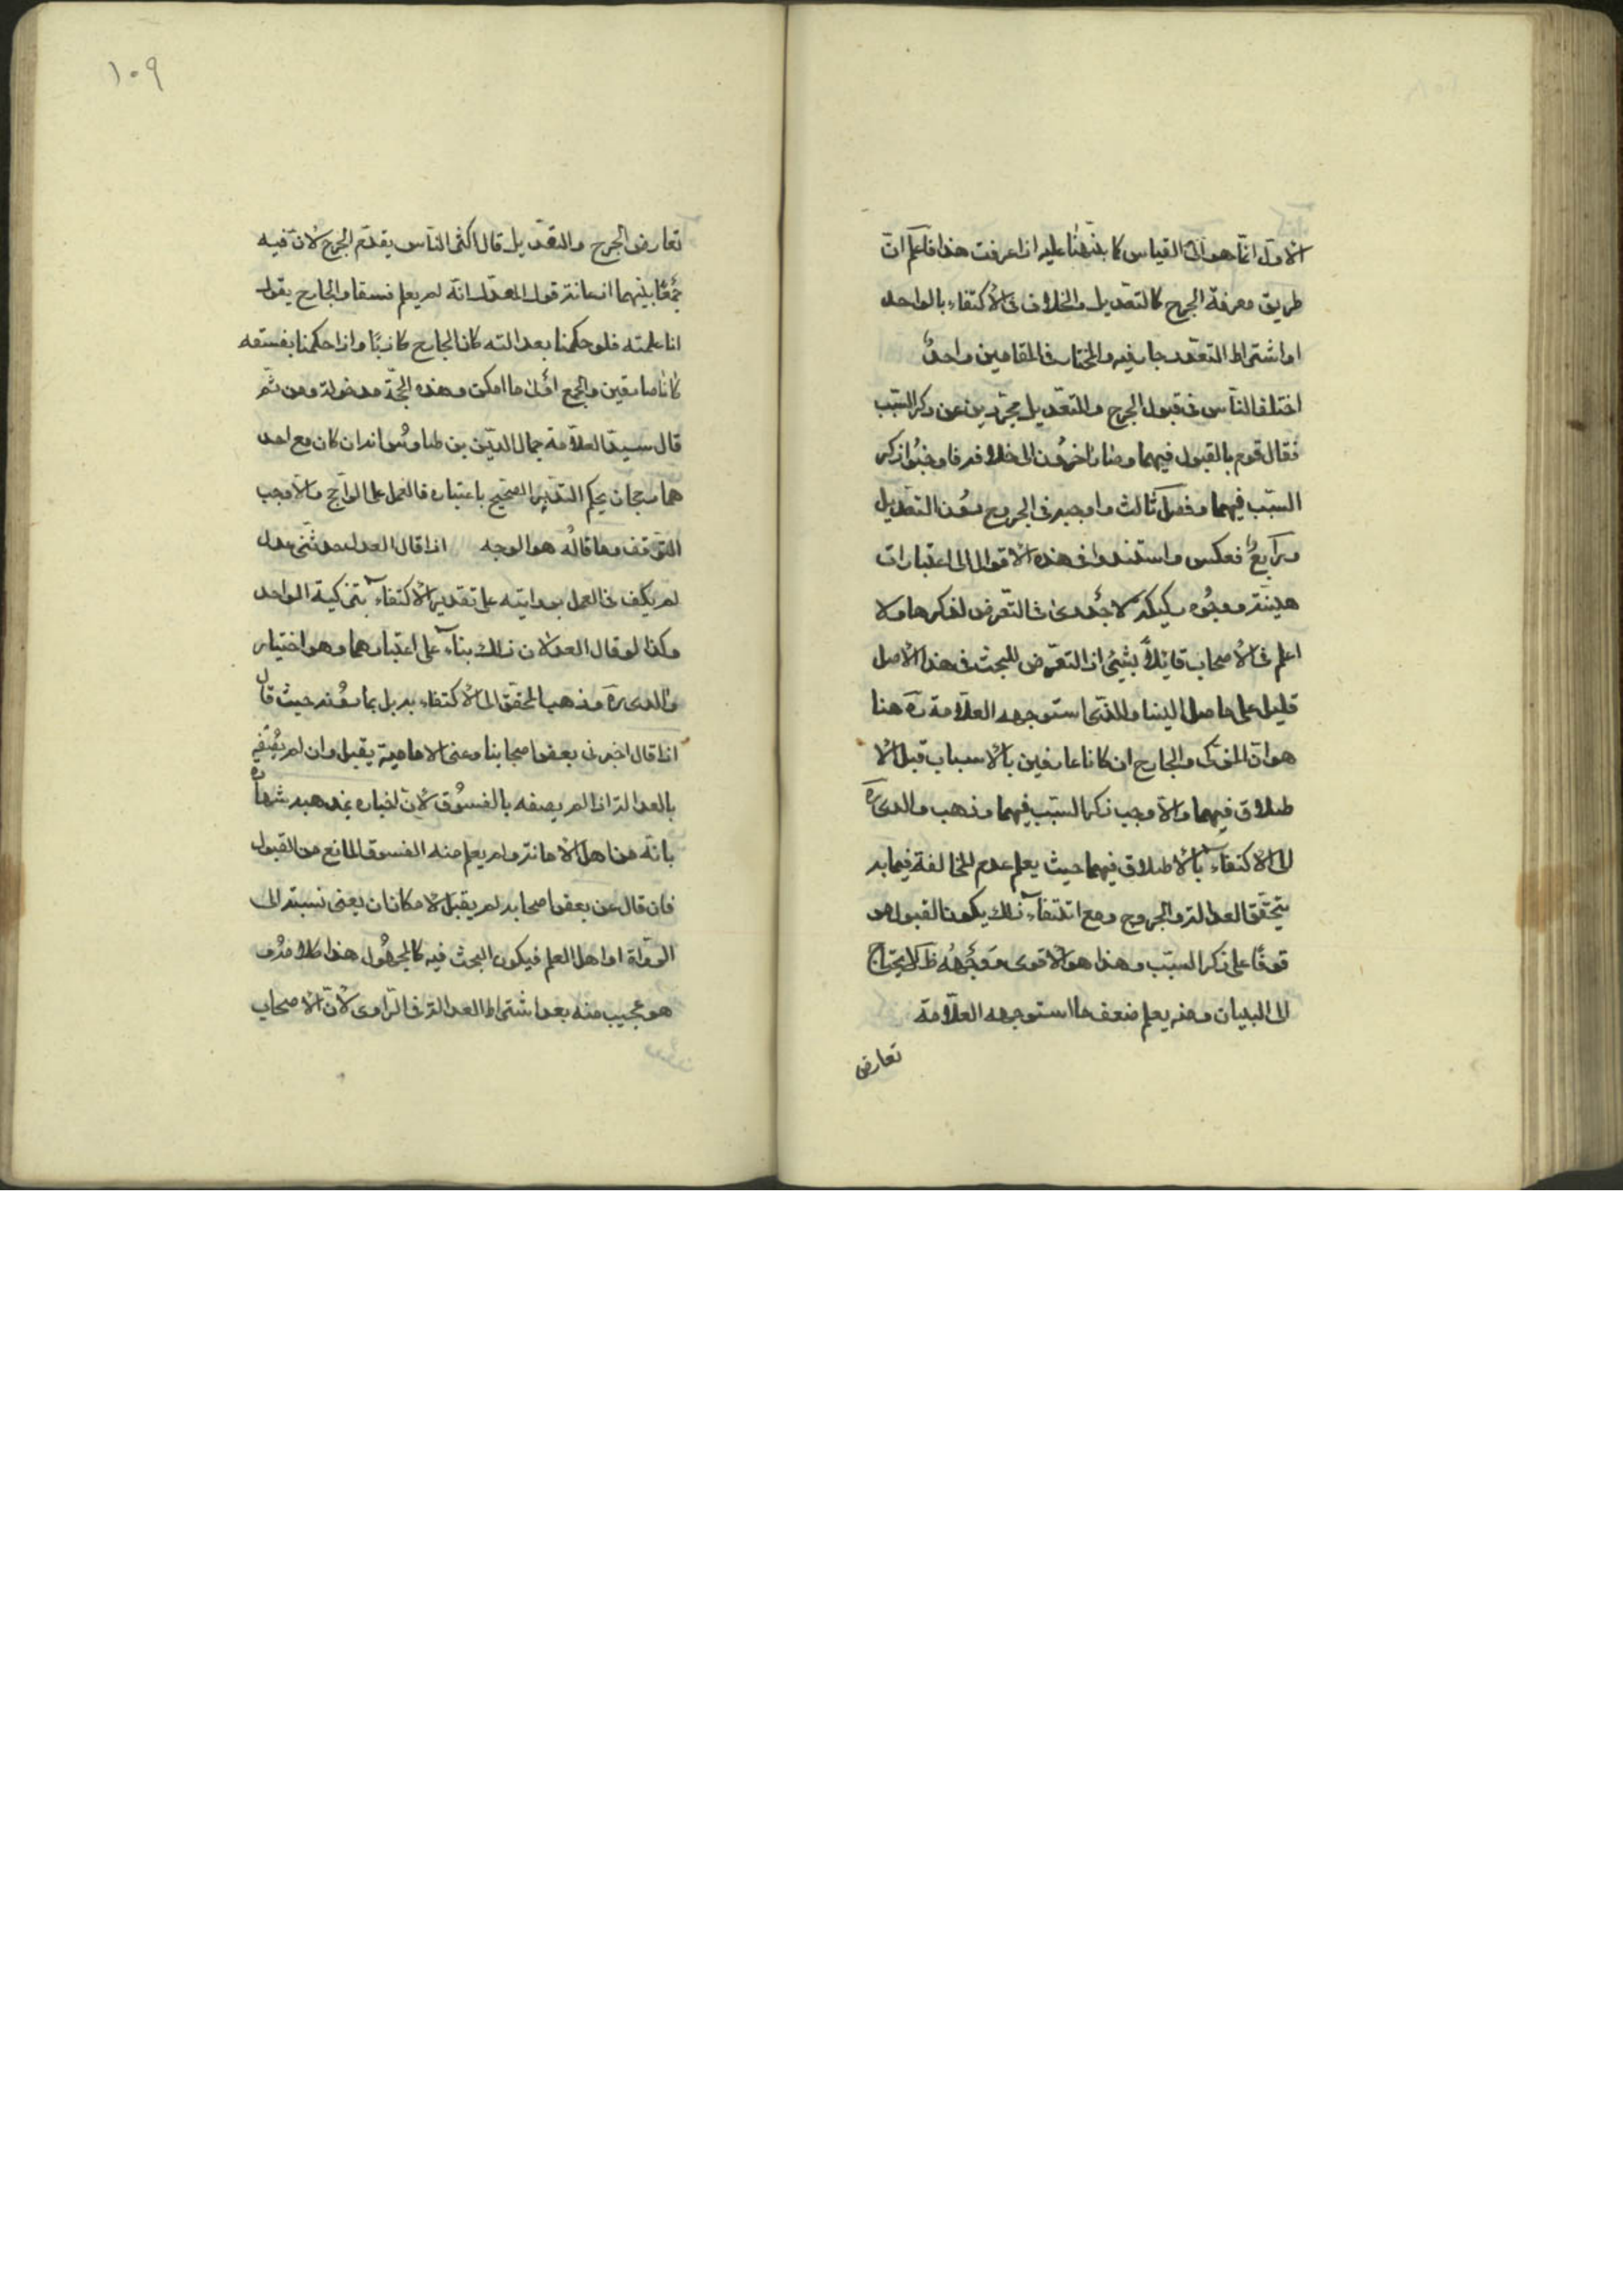 الاول انما هو الى القياس كما نبهنا عليه اذا عرفت هذا فاعلم ان
طريق معرفة الجرح كالتعديل والخلاف فى الاكتفاء بالواحد
او اشتراط التعدد جار فيه والمختار فى المقامين واحد
اختلف الناس فى قبول الجرح والتعديل مجردين عن ذكر السبب
فقال قوم بالقبول فيهما وصار اخرون الى خلافه فاوجبوا ذكر
السبب فيهما وفصل ثالث واوجبه فى الجرح دون التعديل
ورابع فعكس واستندوا فى هذه الاقوال الى اعتبارات
هينة ووجوه ركيكة لا جدوى فى التعرض لذكرها ولا
اعلم فى الاصحاب قائلا بشيئ اذ التعرض للبحث فى هذا الاصل
قليل على ما وصل الينا والذى استوجهه العلامة ره هنا
هو ان المزكى والجارح ان كانا عارفين بالاسباب قبل الا
طلاق فيهما والا وجب ذكر السبب فيهما وذهب والدى ره
الى الاكتفاء بالاطلاق فيهما حيث يعلم عدم المخالفة فيما به
يتحقق العدالة والجروح ومع انتفاء ذلك يكون القبول مو
قوفا على ذكر السبب وهذا هو الاقوى ووجهه ظ لا يحتاج
الى البيان ومنه يعلم ضعف ما استوجهه العلامة
تعارض
١٠٩
تعارض الجرح والتعديل قال اكثر الناس يقدم الجرح لان فيه
جمعا بينهما اذ غاية قول المعدل انه لم يعلم فسقا والجارح يقول
انا علمته فلو حكمنا بعدالته كان الجارح كاذبا واذا حكمنا بفسقه
كانا صادقين والجمع اولى ما امكن وهذه الحجة مدخولة ومن ثم
قال سيد العلامة جمال الدين بن طاوس انه ان كان مع احد
هما رجحان يحكم التدبر الصحيح باعتباره فالعمل على الراجح والا وجب
التوقف وما قاله هو الوجه اذا قال العدل حدثنى عدل
لم يكف فى العمل بروايته على تقدير الاكتفاء بتزكية الواحد
وكذا لو قال العدلان ذلك بناء على اعتبارهما وهو اختيار
والدى ره وذهب المحقق الى الاكتفاء به بل بما دونه حيث قال
اذا قال اخبرنى بعض اصحابنا وعنى الامامية يقبل وان لم يصفه
بالعدالة اذا لم يصفه بالفسوق لان اخباره بمذهبه شهادة
بانه من اهل الامانة ولم يعلم منه الفسوق المانع من القبول
فان قال عن بعض اصحابه لم يقبل لامكان ان يعنى نسبته الى
الرواة او اهل العلم فيكون البحث فيه كالمجهول هذا كلامه و
هو عجيب منه بعد اشتراط العدالة فى الراوى لان الاصحاب